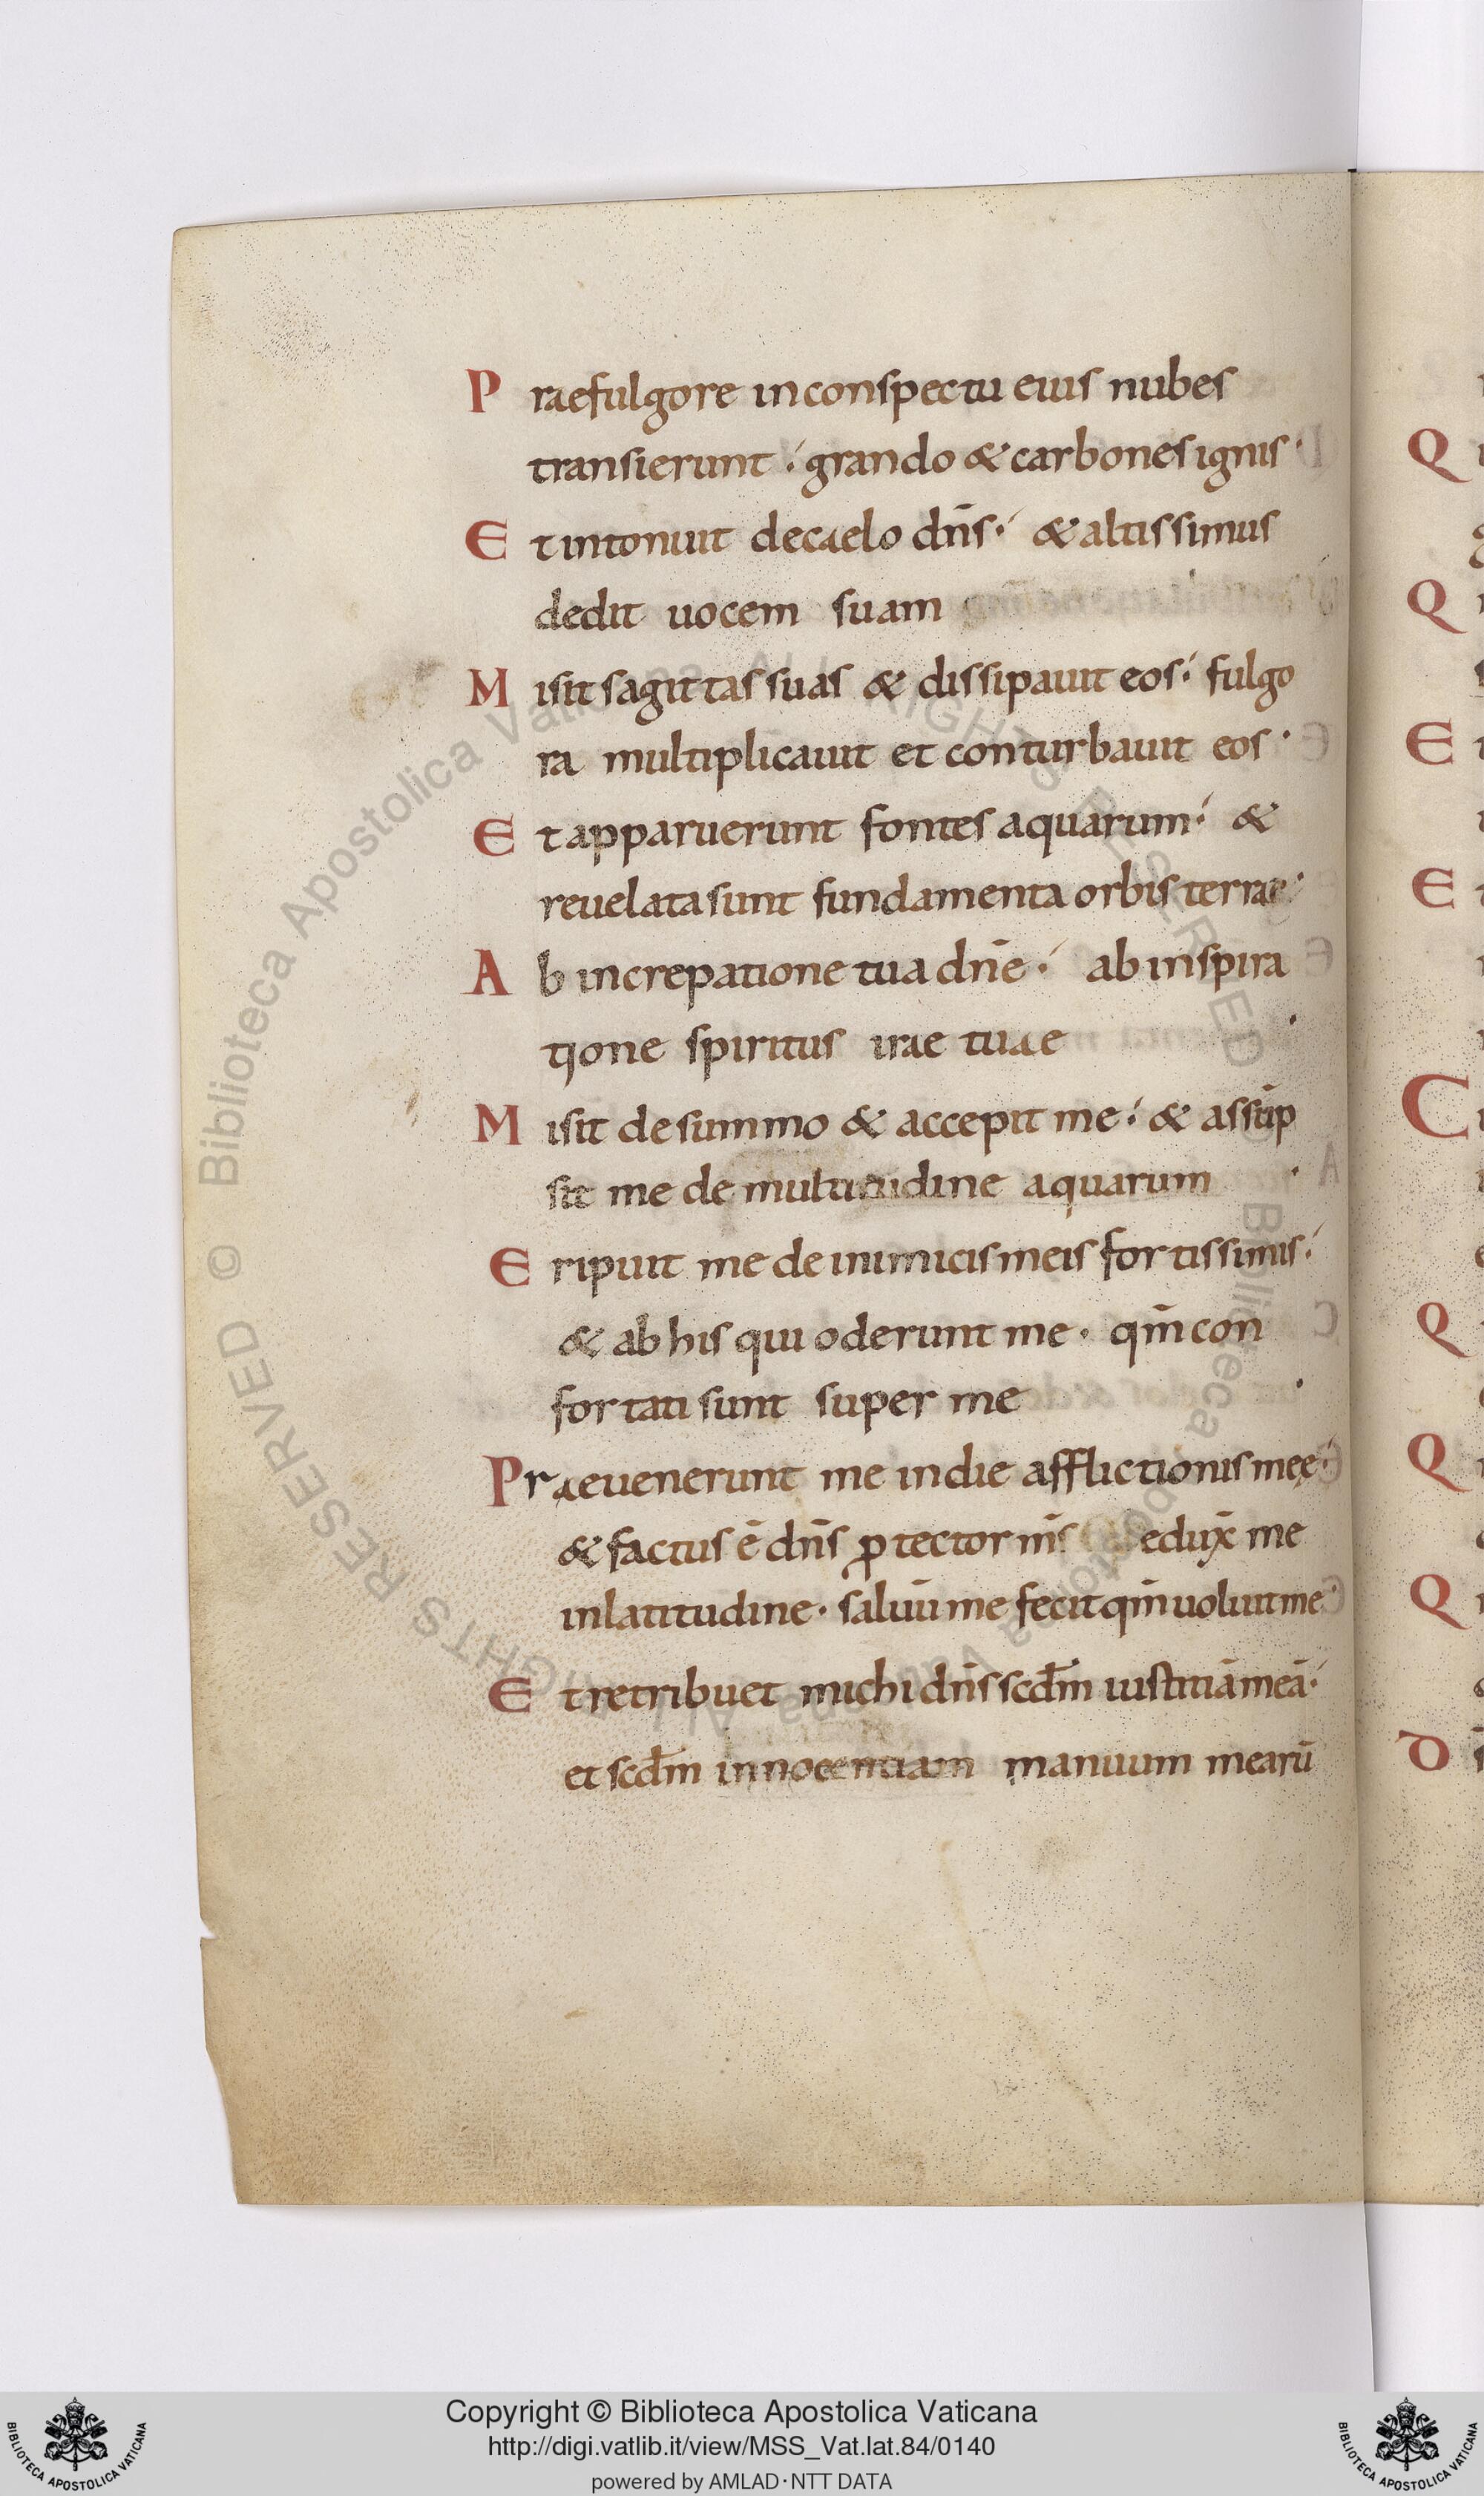 Praefulgore inconspectu eius nubes
transierunt ·́ grando & carbones ignis ·
Et intonuit decaelo dn̄s ·́ & altissimus
dedit uocem suam
Misit sagittas suas & dissipauit eos ·́ fulgo
ra multiplicauit et conturbauit eos ·
Et apparuerunt fontes aquarum ·́ &
reuelata sunt fundamenta orbis terrae ·
Ab increpatione tua dn̄e ·́ ab inspira
tione spiritus irae tuae ·
Misit de summo & accepit me ·́ & assūp
sit me de multitudine aquarum ·
Eripuit me de inimicis meis fortissimis ·́
& ab his qui oderunt me · qm̄ con
fortati sunt super me ·
Praeuenerunt me in die afflictionis meę ·́
& factus ē dn̄s ꝓtector m̄s edux̄ me
in latitudine · saluū me fecit qm̄ uoluit me ·
Et retribuet michi dn̄s scd̄m iustitiā meā ·́
et scd̄m innocentiam manuum mearū
Q
Q
E
E
C
Q
Q
Q
D
© Biblioteca Apostolica Vaticana ALL RIGHTS RESERVED © Biblioteca Apostolica Vaticana ALL RIGHTS RESERVED
BIBLIOTECA APOSTOLICA VATICANA
Copyright © Biblioteca Apostolica Vaticana
http://digi.vatlib.it/view/MSS_Vat.lat.84/0140
powered by AMLAD·NTT DATA
BIBLIOTECA APOSTOLICA VATICANA